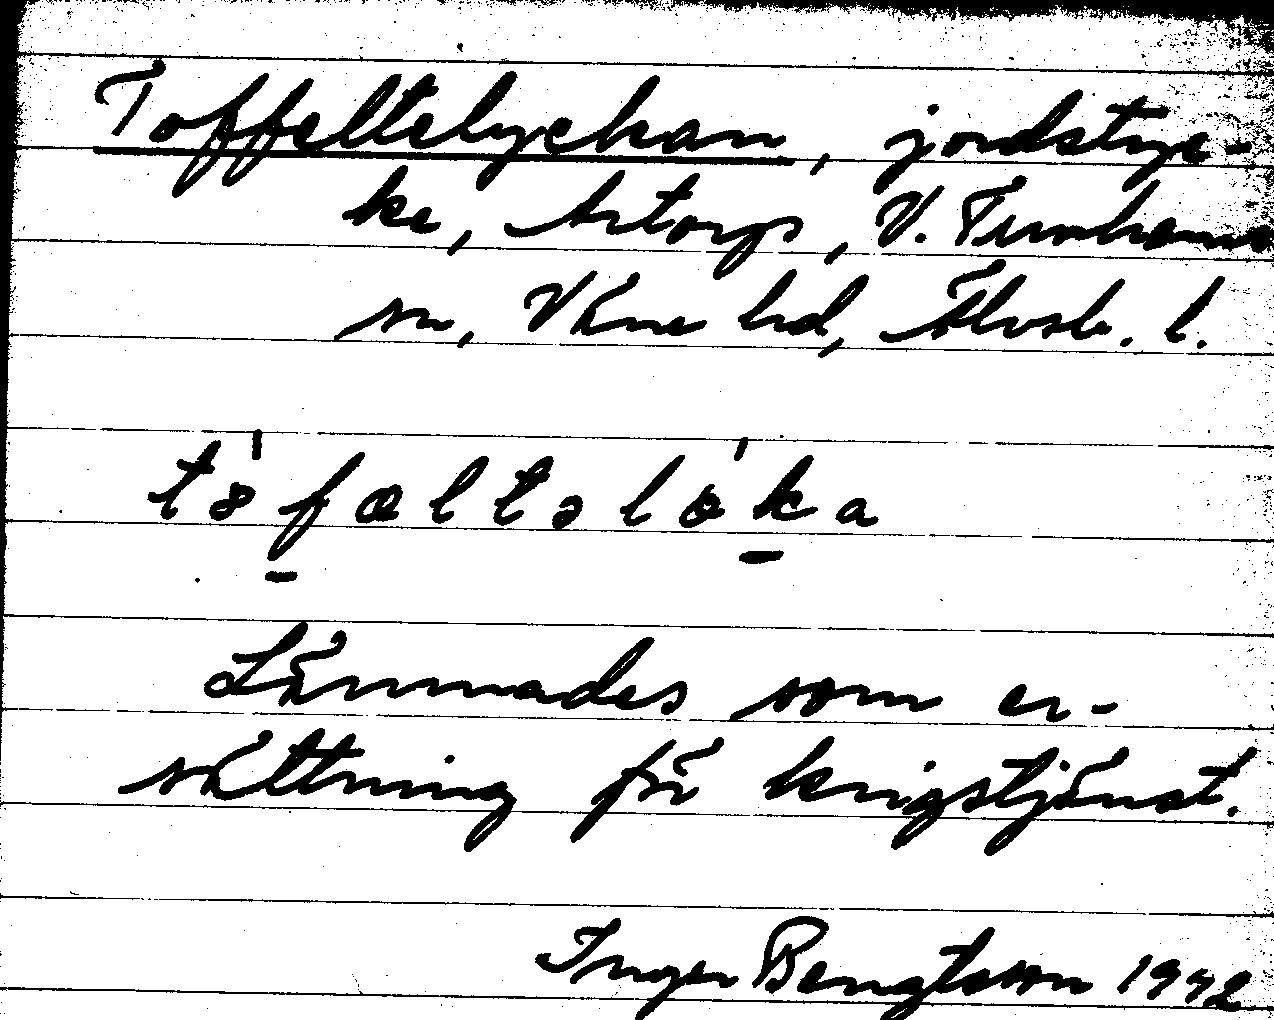 Toffeltelyckan, jordstyc-
ke, Artorp, V. Tunhems
sn, Väne hd, Älvsb. l.
Lämnades som er-
sättning för krigstjänst.
Inger Bengtsson 1942